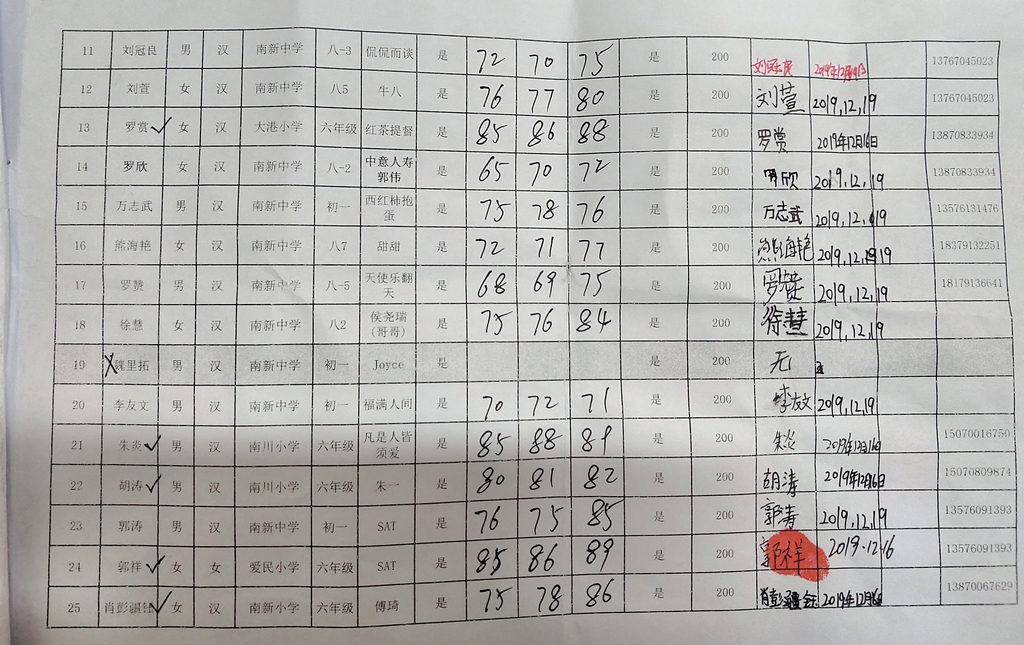 11 刘冠良 男 汉 南新中学 八-3 侃侃而谈 是 72 70 75 是 200 刘冠良 2019年12月19日 13767045023
12 刘萱 女 汉 南新中学 八5 牛八 是 76 77 80 是 200 刘萱 2019,12,19 13767045023
13 罗赏 ✓ 女 汉 大港小学 六年级 红茶提督 是 85 86 88 是 200 罗赏 2019年12月16日 13870833934
14 罗欣 女 汉 南新中学 八-2 中意人寿郭伟 是 65 70 72 是 200 罗欣 2019.12,19 13870833934
15 万志武 男 汉 南新中学 初一 西红柿抱蛋 是 75 78 76 是 200 万志武 2019,12,19 13576131476
16 熊海艳 女 汉 南新中学 八7 甜甜 是 72 71 77 是 200 熊海艳 2019,12,19 18379132251
17 罗赟 男 汉 南新中学 八-5 天使乐翻天 是 68 69 75 是 200 2019,12,19 18179136641
18 徐慧 女 汉 南新中学 八2 侯尧瑞（哥哥） 是 75 76 84 是 200 徐慧 2019,12,19
19 魏里拓 男 汉 南新中学 初一 Joyce 是 是 200 无
20 李友文 男 汉 南新中学 初一 福满人间 是 70 72 71 是 200 李友文 2019,12,19
21 朱炎 ✓ 男 汉 南川小学 六年级 凡是人皆须爱 是 85 88 89 是 200 朱炎 2019年12月16日 15070016750
22 胡涛 ✓ 男 汉 南川小学 六年级 朱一 是 80 81 82 是 200 胡涛 2019年12月16日 15070809874
23 郭涛 男 汉 南新中学 初一 SAT 是 76 75 85 是 200 郭涛 2019,12,19 13576091393
24 郭祥 ✓ 女 女 爱民小学 六年级 SAT 是 85 86 89 是 200 郭祥 2019.12.16 13576091393
25 肖彭疆钰 ✓ 女 汉 南新小学 六年级 傅琦 是 75 78 86 是 200 肖彭疆钰 2019年12月16日 13870067629